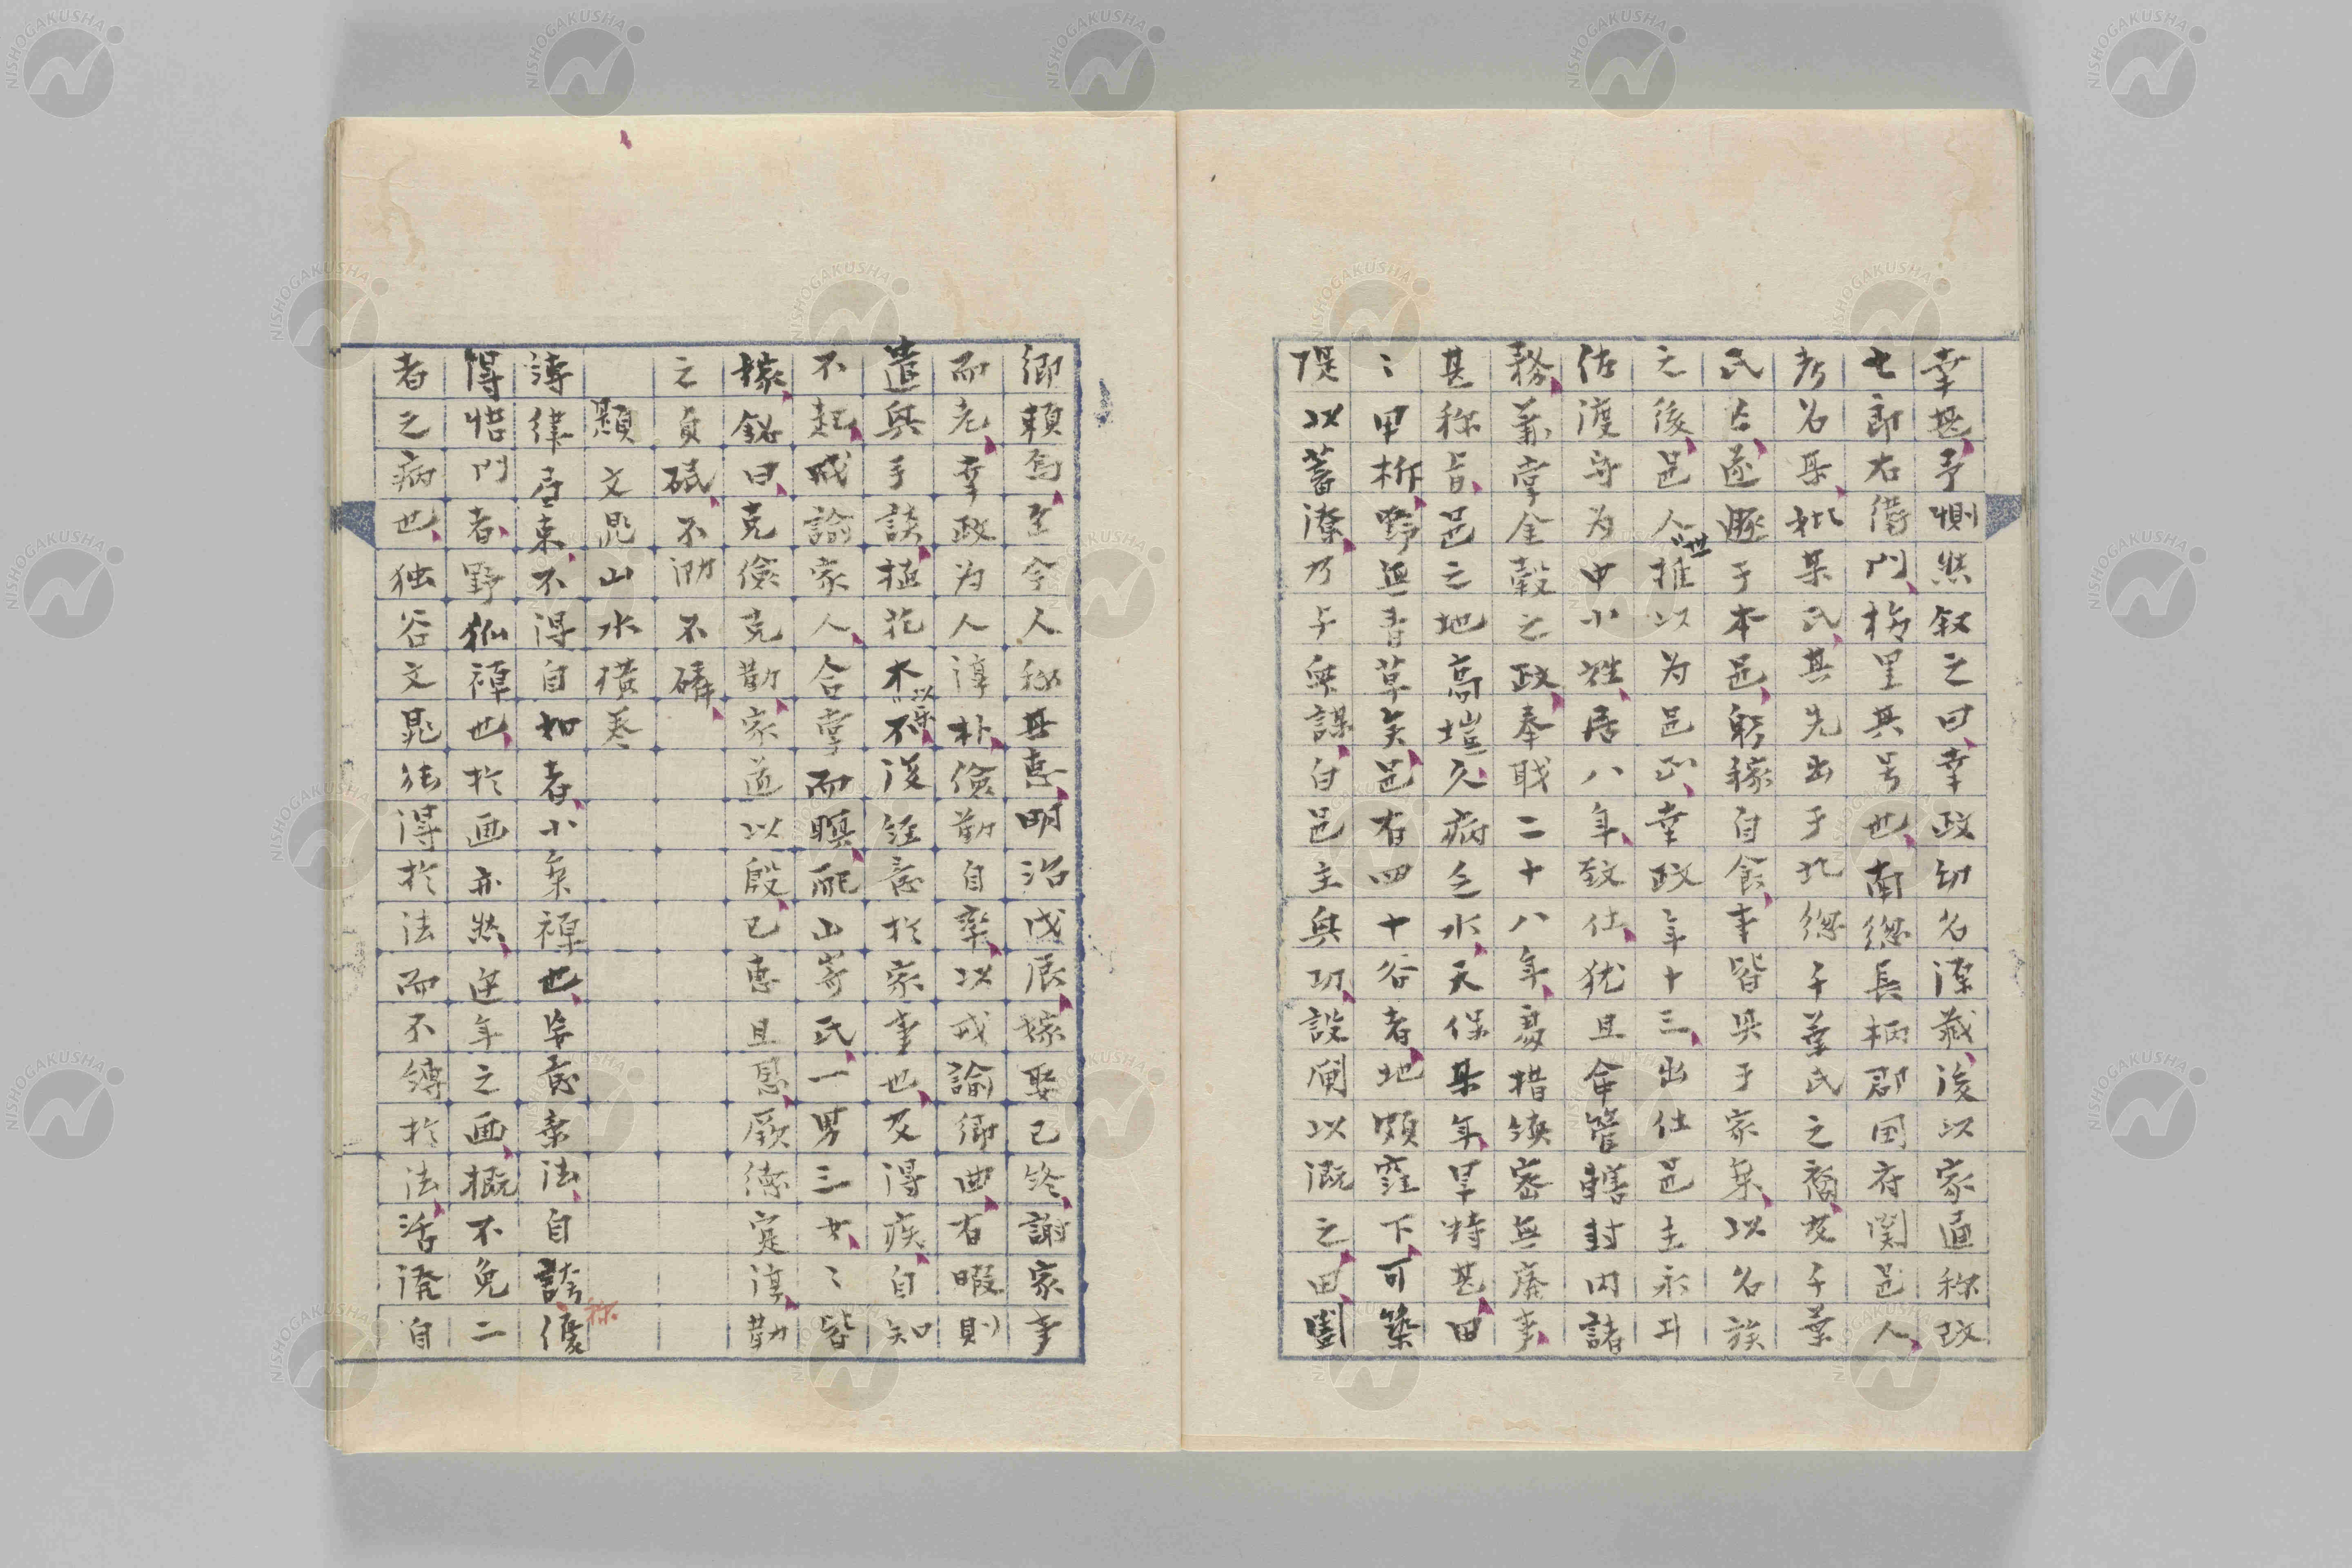 幸甚予惻然叙之曰幸政幼名深蔵後以家通称政
七郎右衛門梅里其号也南総長柄郡国府関邑人
考名某妣某氏其先出于北総千葉氏之裔及千葉
氏亡遂遯于本邑躬稼自食事皆與于家系以名族
之後邑人世推以为邑正幸政年十三出仕邑主永井
佐渡守为中小姓居八年致仕犹且命管轄封内諸
務兼掌金穀之政奉職二十八年舉措縝密無廃事
甚称旨邑之地高塏久病乏水天保某年旱特甚田
〻甲柝野無青草矣邑有四十谷者地頗窪下可築
隄以蓄潦乃与無謀白邑主與功設閘以漑之田圃
郷頼焉至今人称其恵明治戊辰嫁娶已終謝家事
而老幸政为人淳朴儉勤自率以戒諭郷曲有暇則
遣興手談植花木以楽不復経意於家事也及得疾自知
不起戒諭家人合掌而瞑配山嵜氏一男三女〻皆
嫁銘曰克儉克勤家道以殷已恵且恩厥徳寔淳勒
之貞珉不泐不磷
題文晁山水横巻
縛律居束不得自如者小乗禅也安意棄法自誇優
得悟門者野狐禅也於画亦然近年之画概不免二
者之病也独谷文晁能得於法而不縛於法活溌自
称